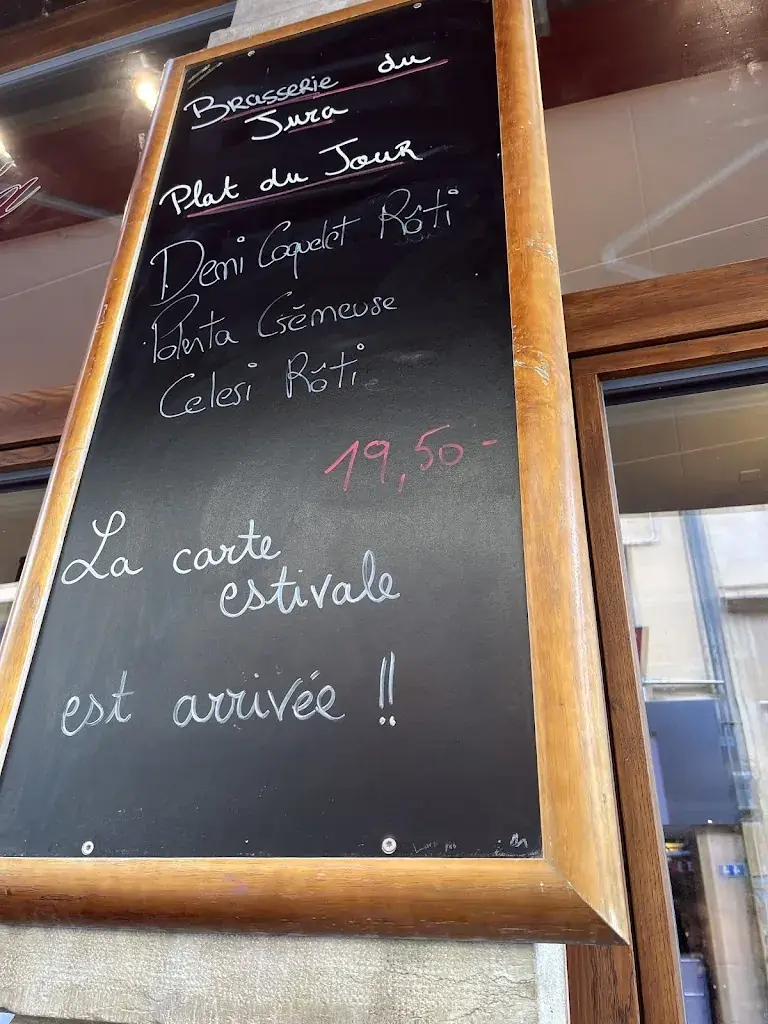 Brasserie du
Jura
Plat du Jour
Demi Coquelet Rôti
Polenta Crémeuse
Celesi Rôti
19,50-
La carte
estivale
est arrivée !!